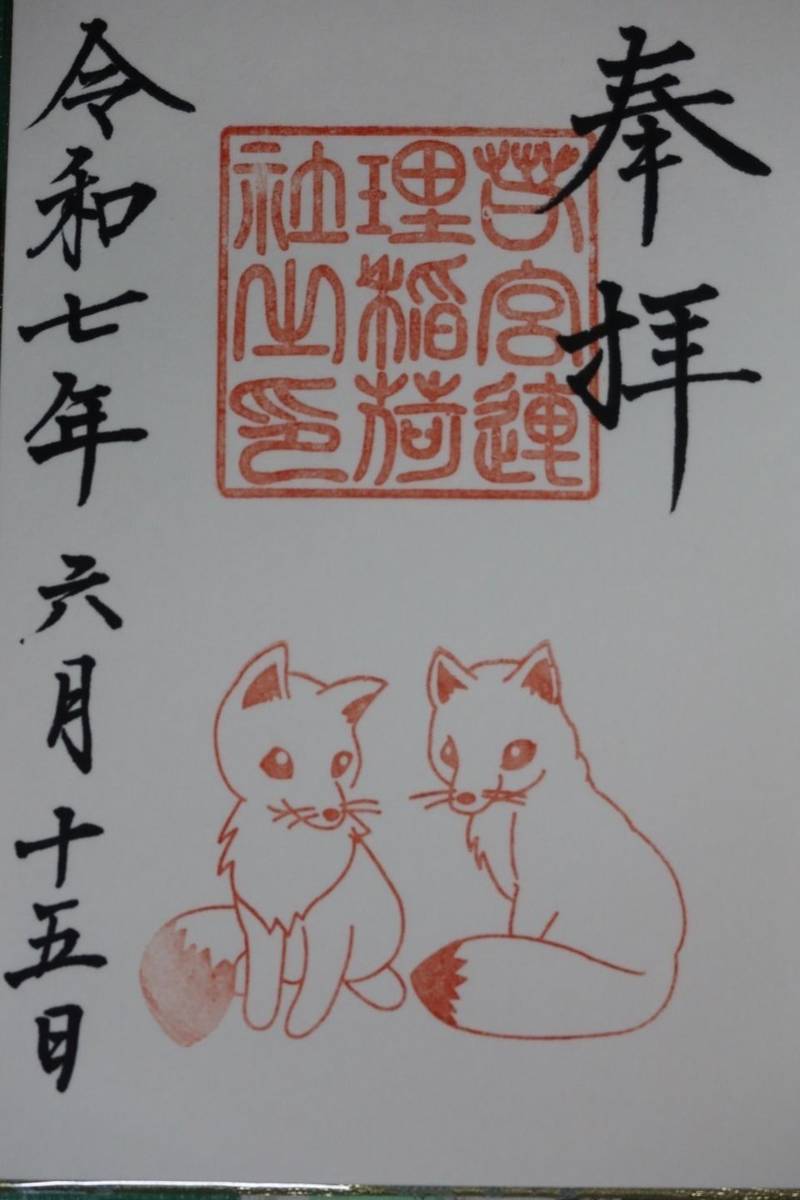 奉拝
若宮連
理稲荷
社之印
令和七年六月十五日